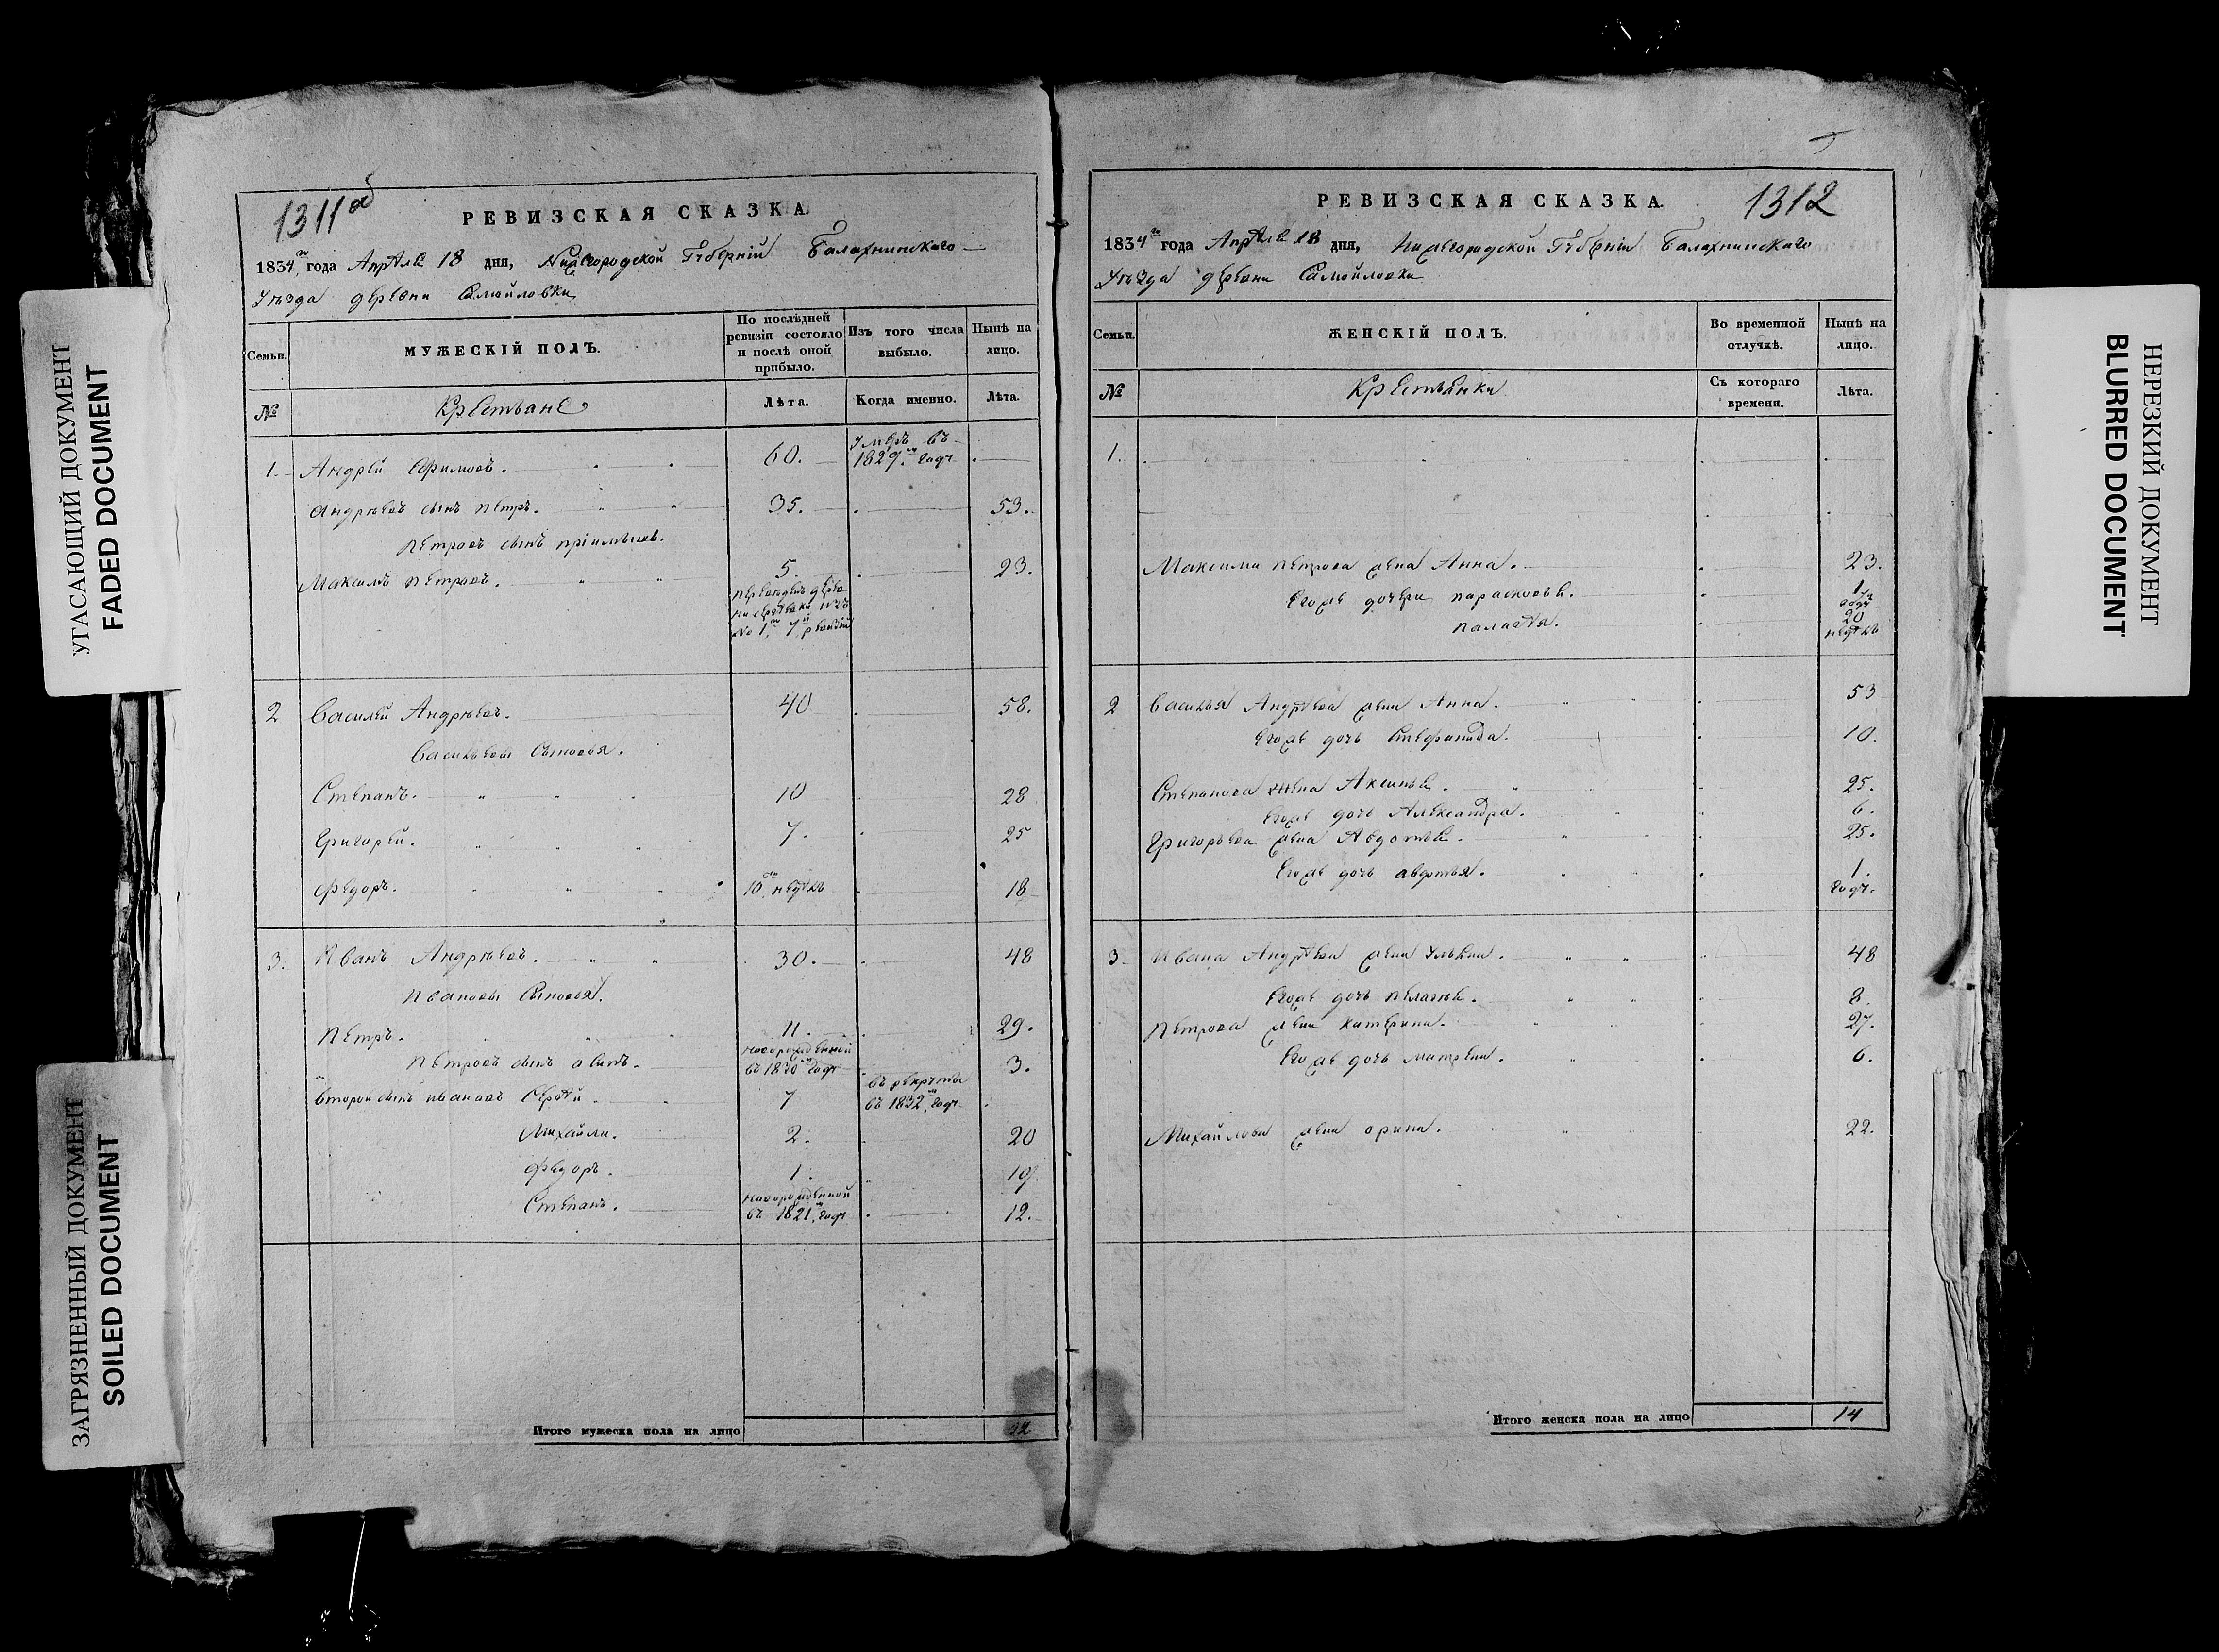 УГАСАЮЩИЙ ДОКУМЕНТ
FADED DOCUMENT
ЗАГРЯЗНЕННЫЙ ДОКУМЕНТ
SOILED DOCUMENT
1311 об
РЕВИЗСКАЯ СКАЗКА.
1834 го года Апреля 18 дня, Нижегородской Губернии Балахнинскаго
Уезда деревни Самойловки
Семьи.
МУЖЕСКІЙ ПОЛЪ.
По послѣдней ревизіи состояло и послѣ оной прибыло.
Изъ того числа выбыло.
Нынѣ на лицо.
№
Крестьяне
Лѣта.
Когда именно.
Лѣта.
1. Андрей Ефимовъ. 60. Умеръ въ 1827 м году
Андреевъ сынъ Петръ. 35. 53.
Петровъ сынъ
Максимъ Петровъ. 5. 23.
№ 1 7 й ревизии
2 Василей Андреевъ. 40 58.
Васильевы Сыновья.
Степанъ. 10 28
Григорей. 7. 25
Федоръ. 10 недель 18
3. Иванъ Андреевъ. 30. 48
Ивановы Сыновья.
Петръ. 11. 29.
Петровъ сынъ новорожденной въ 1830 м году 3.
второй сынъ ивановъ Сергей 7 въ рекруты въ 1832 м году
Михайла. 2. 20
Федоръ. 1. 19.
Степанъ. новорожденной въ 1821 м году 12.
Итого мужеска пола на лицо 12
1312
РЕВИЗСКАЯ СКАЗКА.
1834 го года Апреля 18 дня, Нижегородской Губернии Балахнинскаго
Уезда деревни Самойловки
Семьи.
ЖЕНСКІЙ ПОЛЪ.
Во временной отлучкѣ.
Нынѣ на лицо.
№
Крестьянки
Съ котораго времени.
Лѣта.
1.
Максима петрова жена Анна. 23.
Егоже дочери парасковья. 1 году
20 недель
2 Василья Андреева жена Анна. 53
Егоже дочь Стефанида. 10.
Степанова жена Аксинья. 25.
Егоже дочь Александра. 6.
Григорьева жена Авдотья. 25.
Егоже дочь авдотья. 1. году.
3. Ивана Андреева жена Ульяна. 48
Егоже дочь пелагея. 8.
Петрова жена катерина. 27.
Егоже дочь матрена. 6.
Михайлова жена орина. 22.
Итого женска пола на лицо 14
НЕРЕЗКИЙ ДОКУМЕНТ
BLURRED DOCUMENT